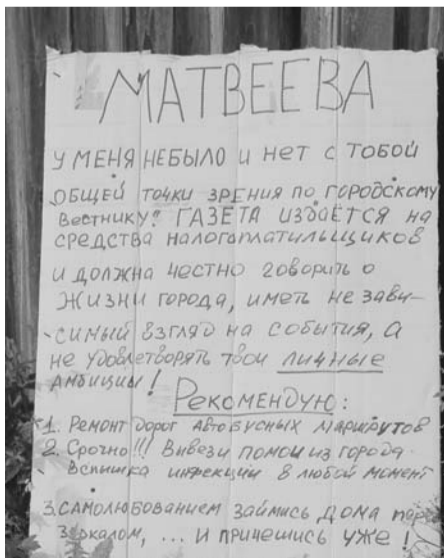 МАТВЕЕВА
У МЕНЯ НЕБЫЛО И НЕТ С ТОБОЙ
ОБЩЕЙ ТОЧКИ ЗРЕНИЯ ПО ГОРОДСКОМУ
ВЕСТНИКУ! ГАЗЕТА ИЗДАЁТСЯ НА
СРЕДСТВА НАЛОГОПЛАТИЛЬЩИКОВ
И ДОЛЖНА ЧЕСТНО ГОВОРИТЬ О
ЖИЗНИ ГОРОДА, ИМЕТЬ НЕ ЗАВИ-
СИМЫЙ ВЗГЛЯД НА СОБЫТИЯ, А
НЕ УДОВЛЕТВОРЯТЬ ТВОИ ЛИЧНЫЕ
АМБИЦИИ!
РЕКОМЕНДУЮ:
1. РЕМОНТ ДОРОГ АВТОБУСНЫХ МАРШРУТОВ
2. СРОЧНО!!! ВЫВЕЗИ ПОМОИ ИЗ ГОРОДА
ВСПЫШКА ИНФЕКЦИИ В ЛЮБОЙ МОМЕНТ
3. САМОЛЮБОВАНИЕМ ЗАЙМИСЬ ДОМА
ЗЕРКАЛОМ, ... И ПРИЧЕШИСЬ УЖЕ!